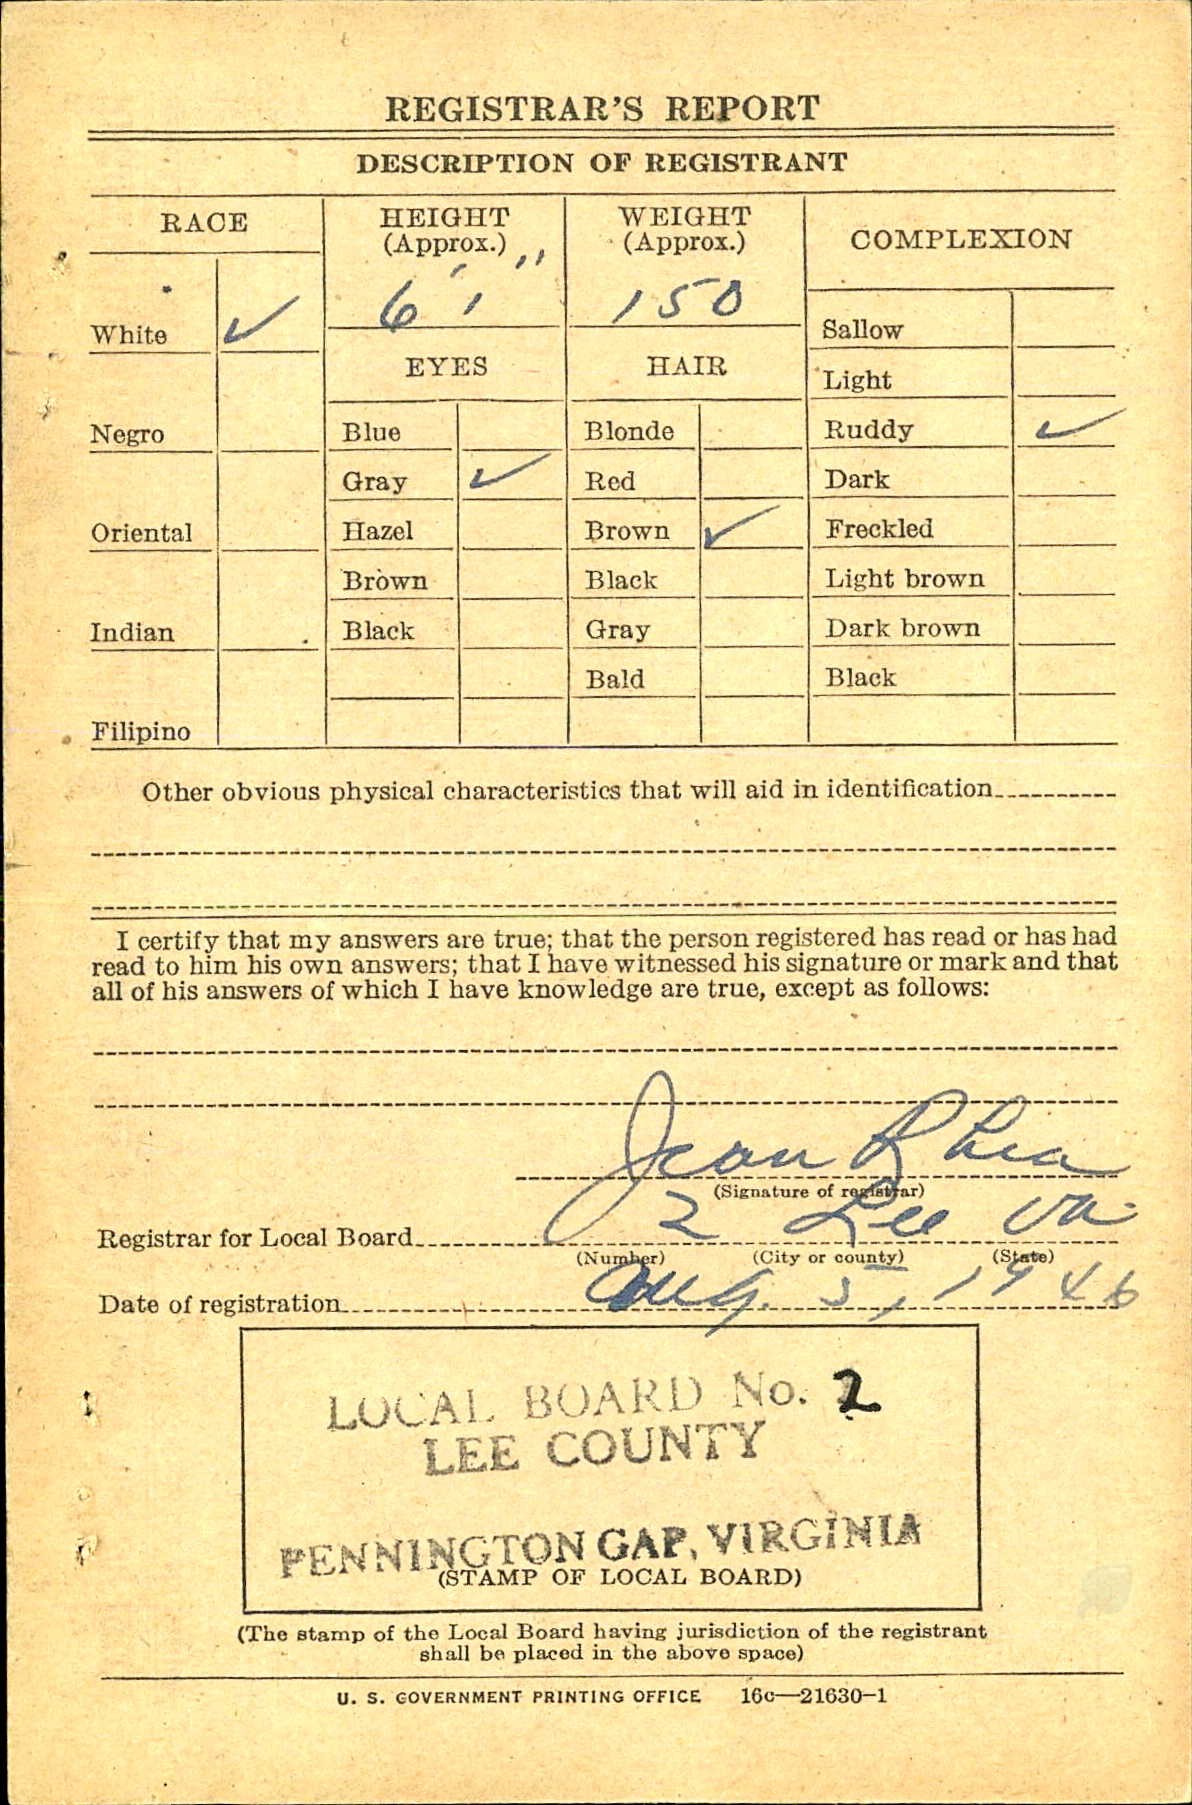 REGISTRAR'S REPORT
DESCRIPTION OF REGISTRANT
RACE
HEIGHT
(Approx.)
6' 1"
WEIGHT
(Approx.)
150
COMPLEXION
White ✓
Negro
Oriental
Indian
Filipino
EYES
Blue
Gray ✓
Hazel
Brown
Black
HAIR
Blonde
Red
Brown ✓
Black
Gray
Bald
Sallow
Light
Ruddy ✓
Dark
Freckled
Light brown
Dark brown
Black
Other obvious physical characteristics that will aid in identification
I certify that my answers are true; that the person registered has read or has had
read to him his own answers; that I have witnessed his signature or mark and that
all of his answers of which I have knowledge are true, except as follows:
Jean Rhea
(Signature of registrar)
Registrar for Local Board 2 Lee Va.
(Number) (City or county) (State)
Date of registration Aug. 5, 1946
LOCAL BOARD No. 2
LEE COUNTY
PENNINGTON GAP, VIRGINIA
(STAMP OF LOCAL BOARD)
(The stamp of the Local Board having jurisdiction of the registrant
shall be placed in the above space)
U. S. GOVERNMENT PRINTING OFFICE 16c—21630-1